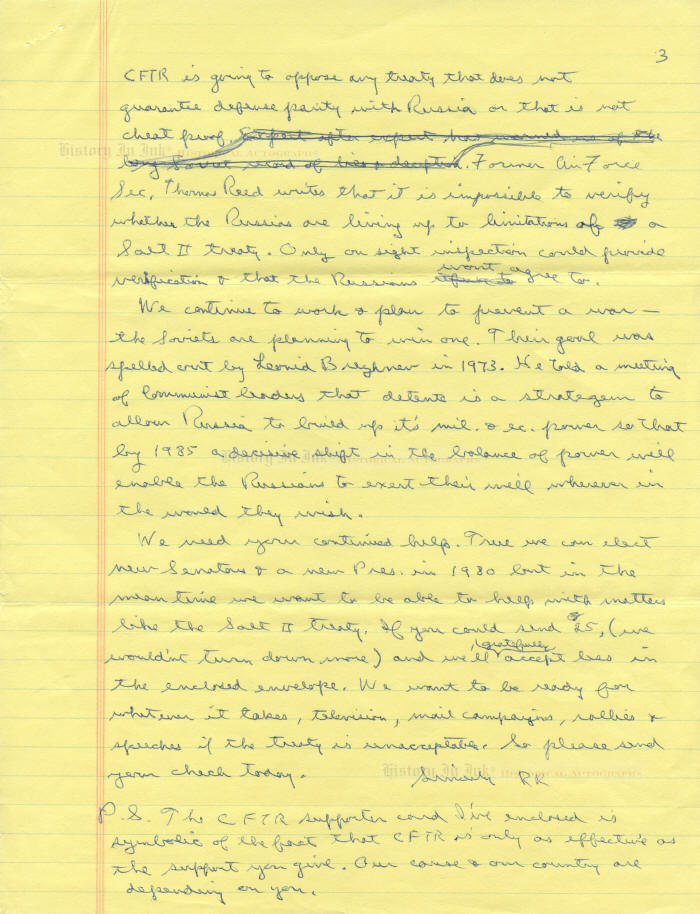 3
CFTR is going to oppose any treaty that does not
guarantee defense parity with Russia or that is not
cheat proof. Expert after expert has warned us of the
long Soviet record of lies & deception. Former Air Force
Sec. Thomas Reed writes that it is impossible to verify
whether the Russians are living up to limitations of a
Salt II treaty. Only on sight inspection could provide
verification & that the Russians refuse to wont agree to.
We continue to work & plan to prevent a war —
the Soviets are planning to win one. Their goal was
spelled out by Leonid Brezhnev in 1973. He told a meeting
of Communist leaders that detente is a stratagem to
allow Russia to build up it's mil. & ec. power so that
by 1985 a decisive shift in the balance of power will
enable the Russians to exert their will wherever in
the world they wish.
We need your continued help. True we can elect
new Senators & a new Pres. in 1980 but in the
mean time we want to be able to help with matters
like the Salt II treaty. If you could send $25, (we
wouldn't turn down more) and we'll gratefully accept less in
the enclosed envelope. We want to be ready for
whatever it takes, television, mail campaigns, rallies &
speeches if the treaty is unacceptable. So please send
your check today. Sincerely RR
P.S. The CFTR supporter card I've enclosed is
symbolic of the fact that CFTR is only as effective as
the support you give. Our cause & our country are
depending on you.
History In Ink® HISTORICAL AUTOGRAPHS
History In Ink® HISTORICAL AUTOGRAPHS
History In Ink® HISTORICAL AUTOGRAPHS